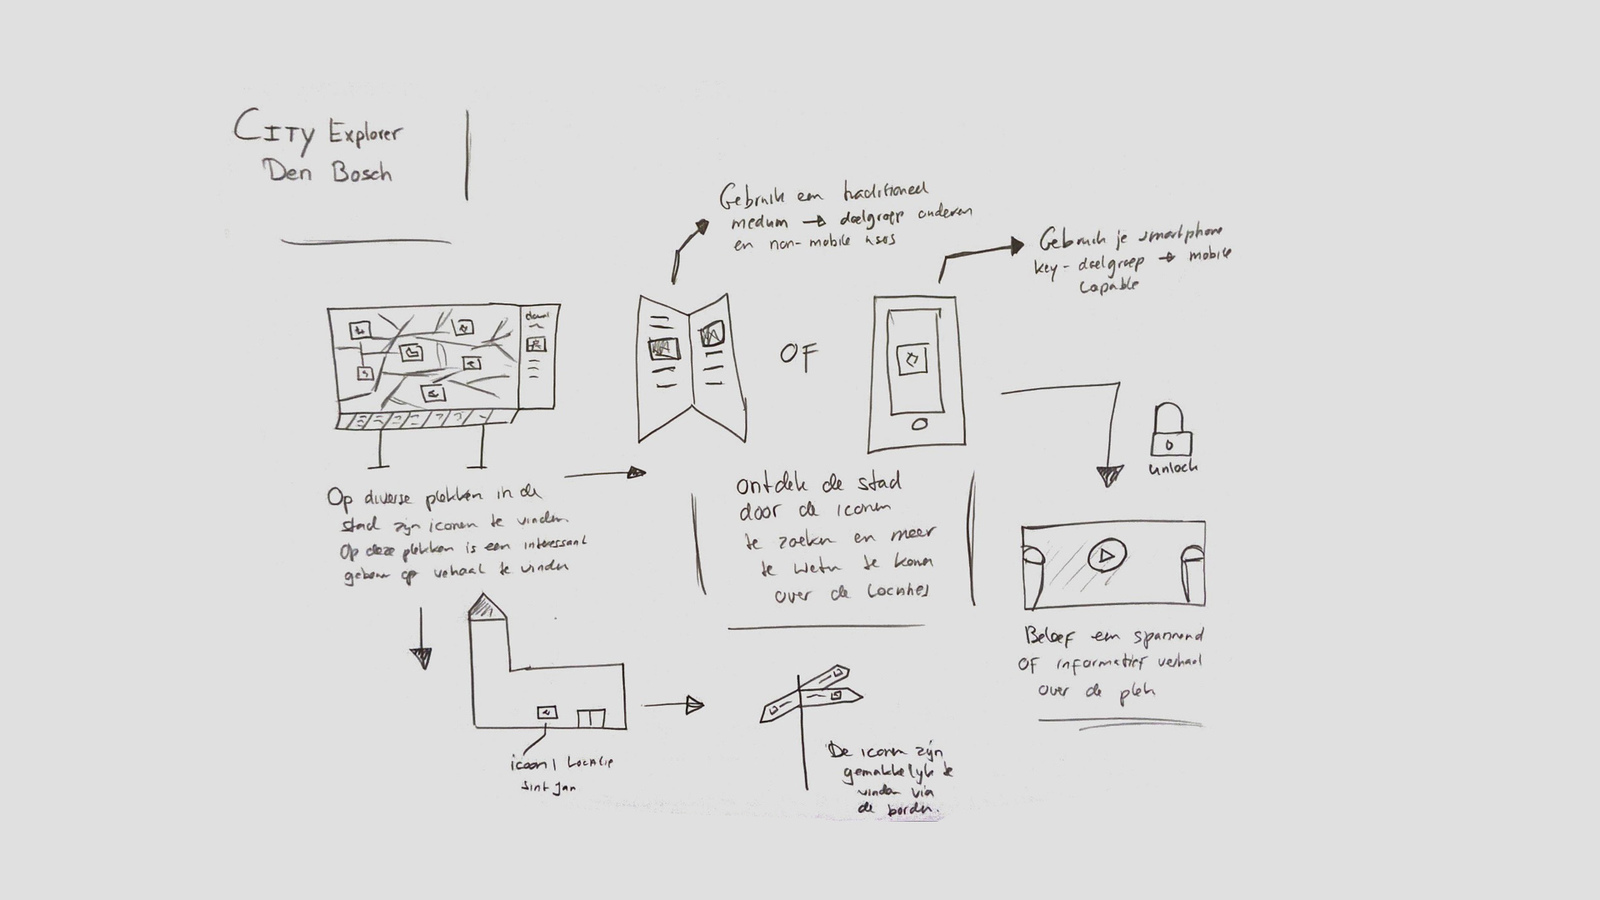 City Explorer
Den Bosch
Gebruik een traditioneel
medium → doelgroep ouderen
en non-mobile users
Gebruik je smartphone
key-doelgroep → mobile
capable
OF
unlock
Op diverse plekken in de
stad zijn iconen te vinden.
Op deze plekken is een interessant
gebouw op verhaal te vinden
ontdek de stad
door de iconen
te zoeken en meer
te weten te komen
over de locaties
Beleef een spannend
OF informatief verhaal
over de plek
icoon | Locatie
Sint Jan
De iconen zijn
gemakkelijk te
vinden via
de borden.